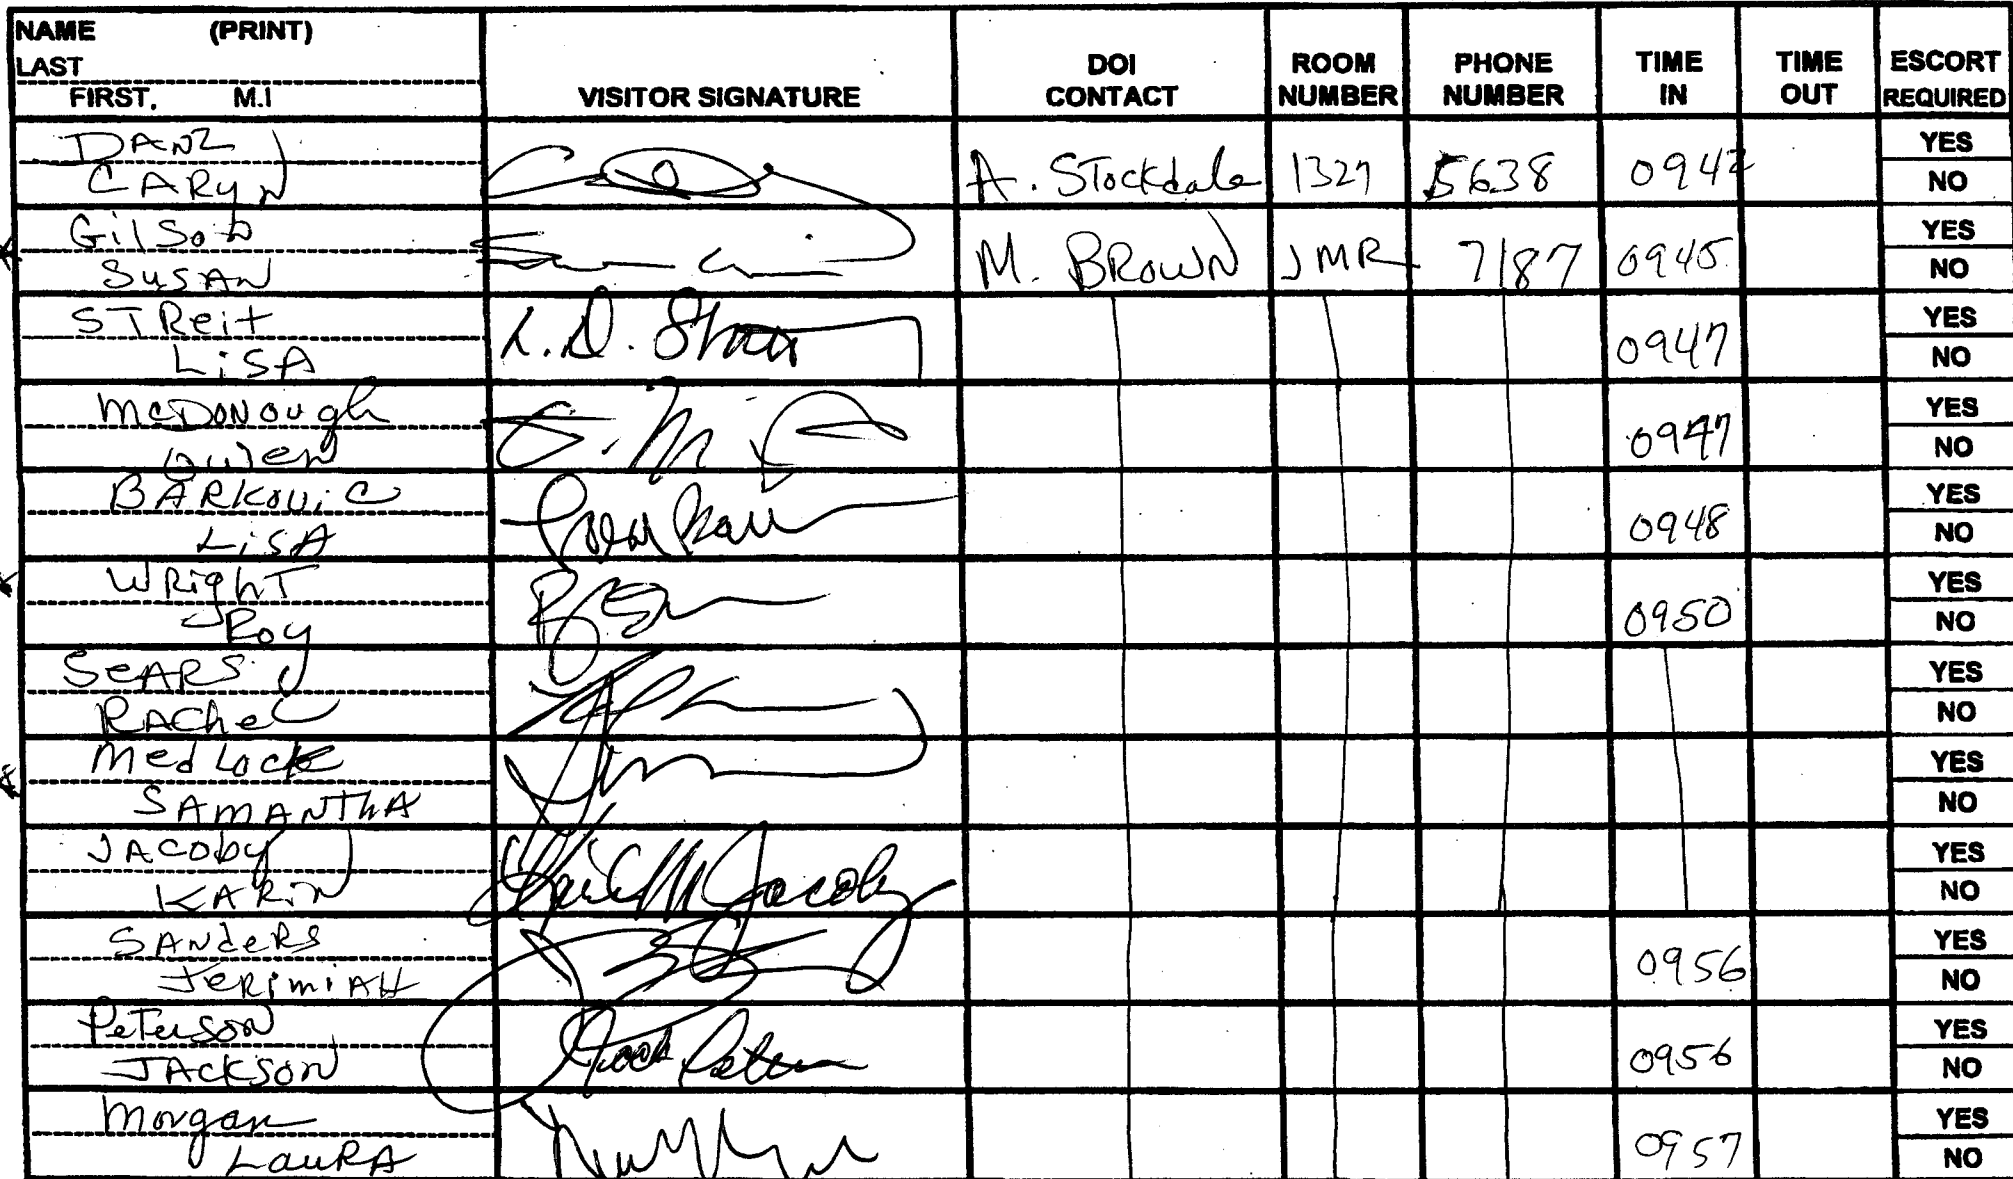 NAME (PRINT)
LAST
FIRST, M.I
VISITOR SIGNATURE
DOI CONTACT
ROOM NUMBER
PHONE NUMBER
TIME IN
TIME OUT
ESCORT REQUIRED
DANZ
CARYN
A. Stockdale 1327 5638 0942
YES
NO
Gilson
SUSAN
M. BROWN JMR 7187 0945
YES
NO
STReit
LiSA
L.D. 0947
YES
NO
McDonough
Owen
0947
YES
NO
BARKOViC
LiSA
0948
YES
NO
WRighT
Roy
0950
YES
NO
SeARS
RAcheL
YES
NO
Medlock
SAMANThA
YES
NO
JACoby
KARiN
M Jacoby
YES
NO
SANdeRS
JeRimiAH
0956
YES
NO
PeTerson
JAckSON
0956
YES
NO
Morgan
LauRA
0957
YES
NO